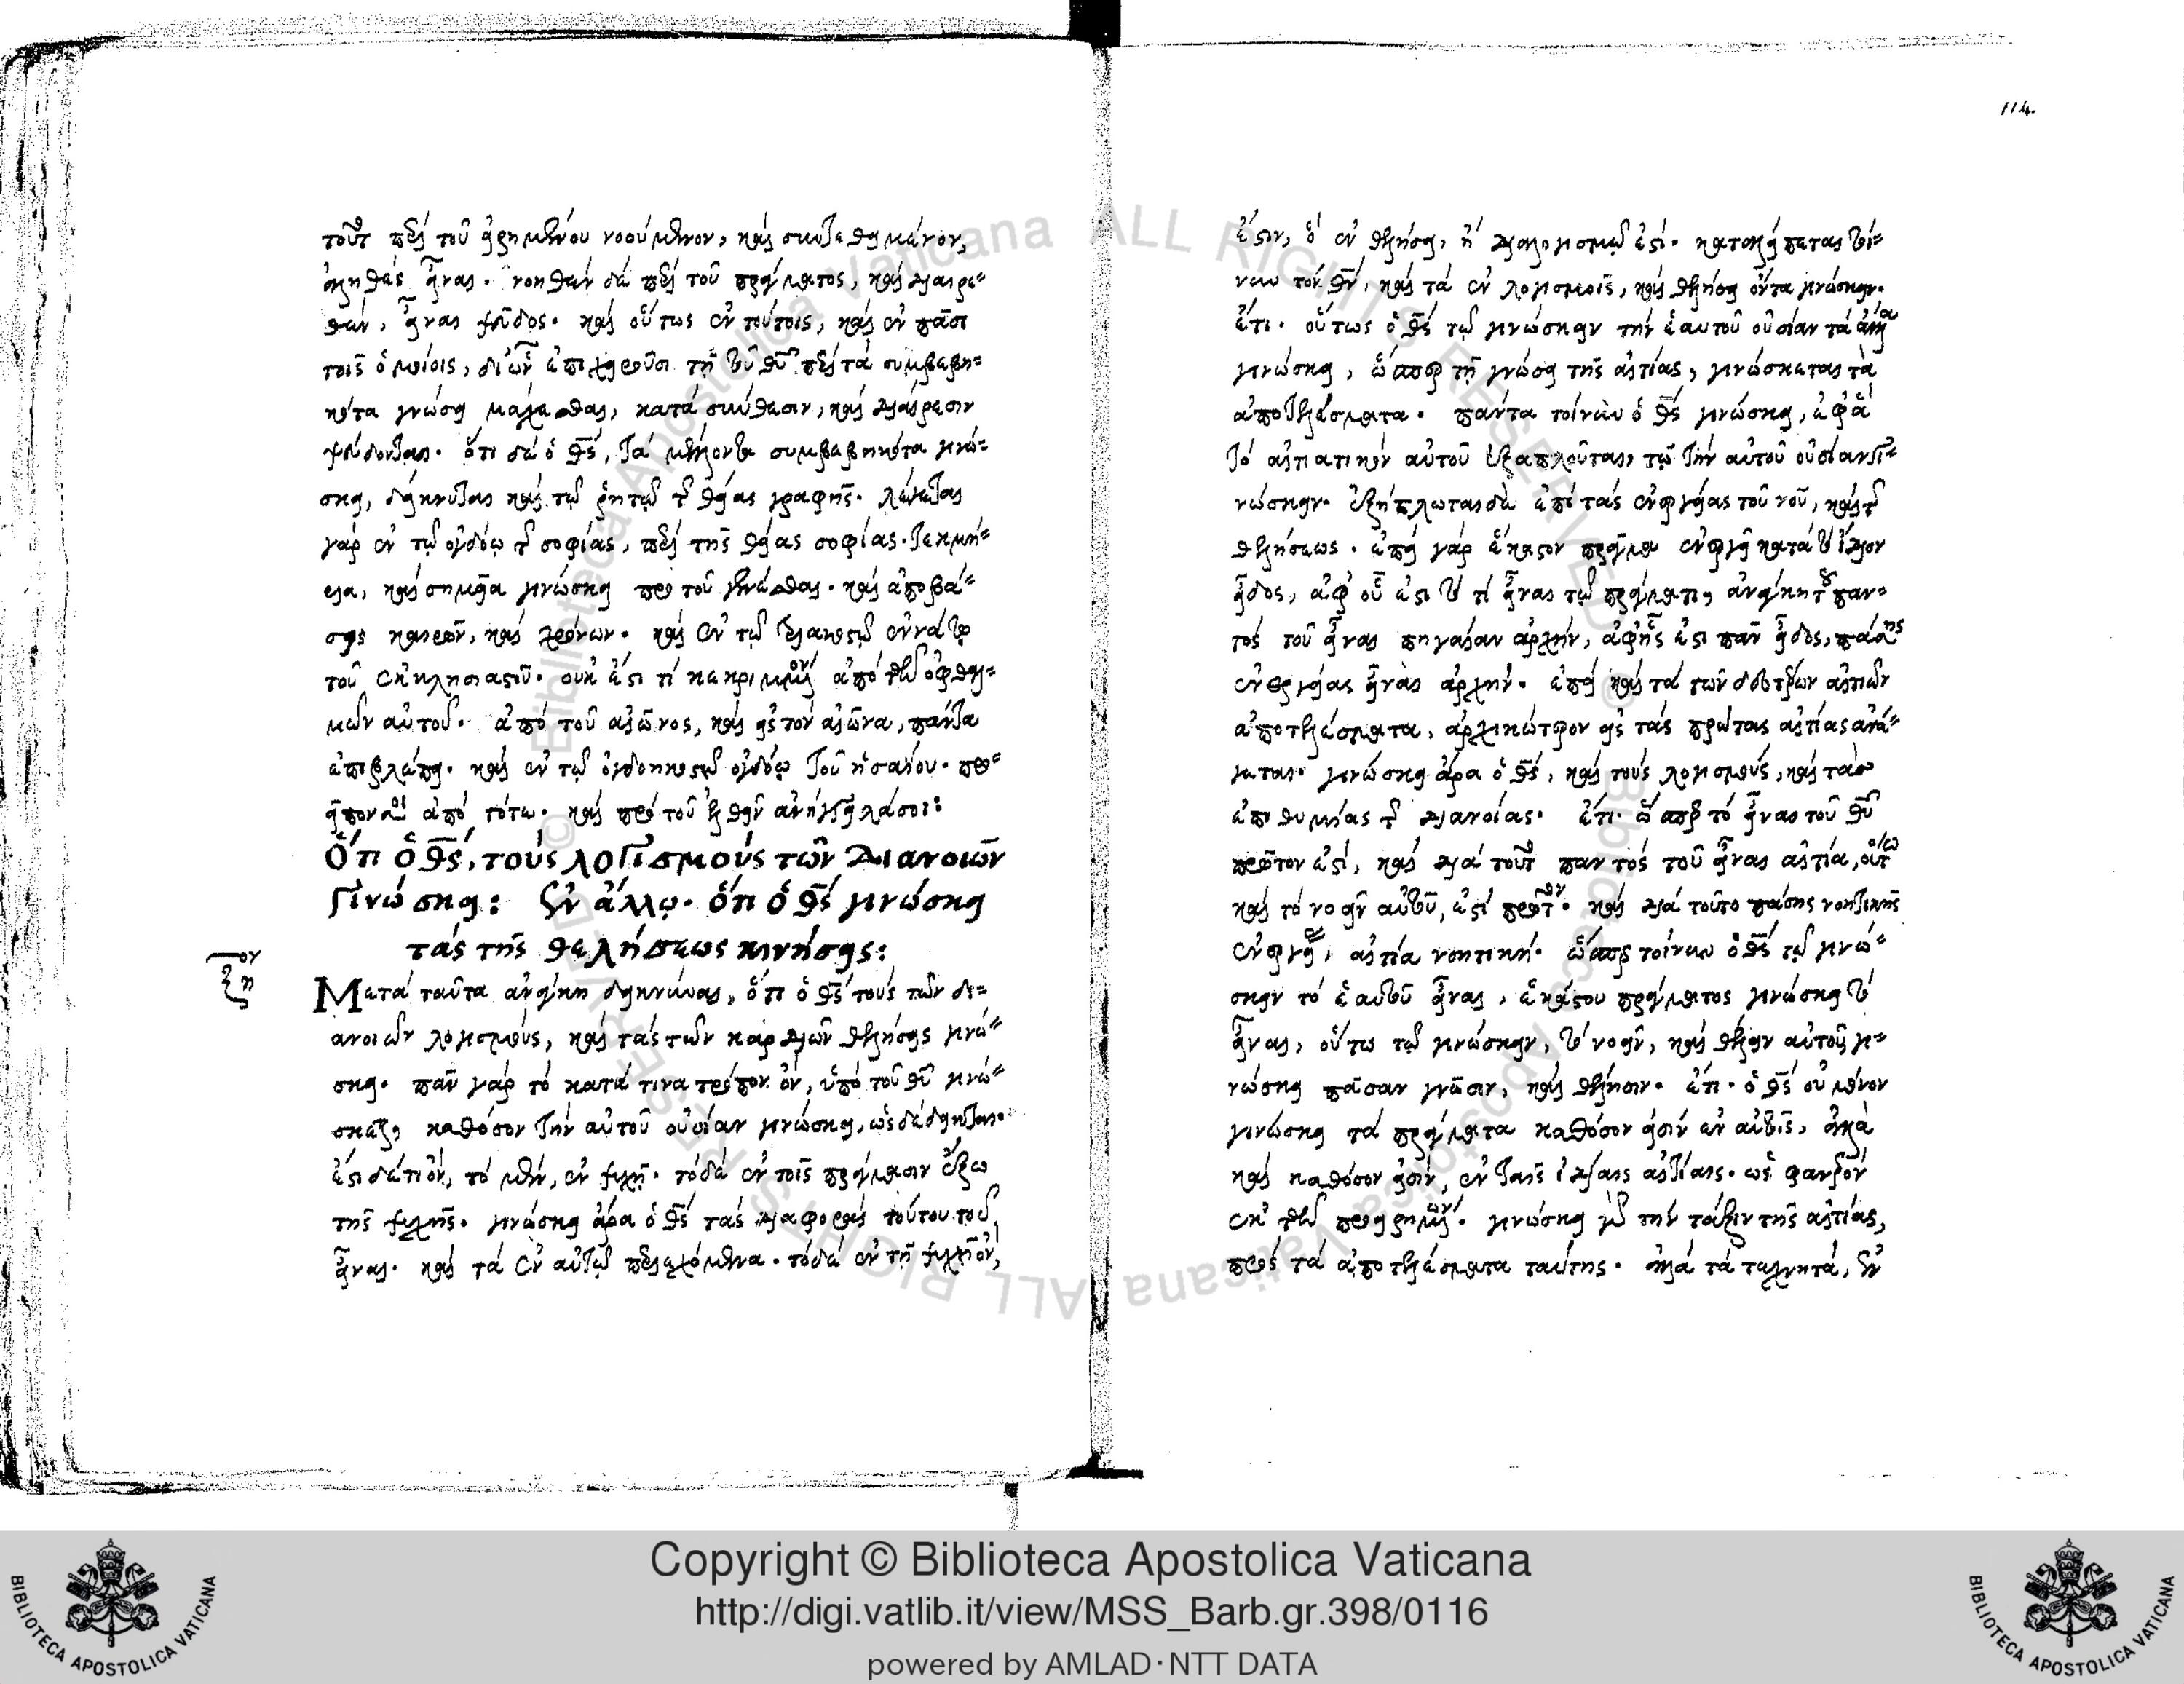 114.
τοῦτο περὶ τοῦ εἰρημένου νοούμενον, καὶ συντεθειμένον,
ἀληθὲς εἶναι. νοηθὲν δὲ περὶ τοῦ πράγματος, καὶ διαιρε=
θὲν, εἶναι ψεῦδος. καὶ οὕτως ἐν τούτοις, καὶ ἐν πᾶσι
τοῖς ὁμοίοις, δι' ὧν ἐπιχειροῦσι τῇ τοῦ θυ περὶ τὰ συμβεβη=
κότα γνώσει μάχεσθαι, κατὰ σύνθεσιν, καὶ διαίρεσιν
ψεύδονται. ὅτι δὲ ὁ θς, τὰ μέλλοντα συμβεβηκότα γινώ=
σκει, δείκνυται καὶ τῷ ῥητῷ τῆς θείας γραφῆς. λέγεται
γὰρ ἐν τῷ ὀγδόῳ τῆς σοφίας, περὶ τῆς θείας σοφίας. τεκμή=
ρια, καὶ σημεῖα γινώσκει πρὸ τοῦ γενέσθαι. καὶ ἀποβά=
σεις καιρῶν, καὶ χρόνων. καὶ ἐν τῷ τριακοστῷ ἐννάτῳ
τοῦ ἐκκλησιαστοῦ. οὐκ ἔστι τί κεκρυμμένον ἀπὸ τῶν ὀφθαλ=
μῶν αὐτοῦ. ἀπὸ τοῦ αἰῶνος, καὶ εἰς τὸν αἰῶνα, πάντα
ἐπιβλέπει. καὶ ἐν τῷ ὀγδοηκοστῷ ὀγδόῳ τοῦ ἠσαΐου. προ=
εῖπον σοι ἀπὸ τότε. καὶ πρὸ τοῦ ἐλθεῖν ἀνήγγειλά σοι:
Ὅτι ὁ θς, τοὺς λογισμοὺς τῶν διανοιῶν
γινώσκει: ἐν ἄλλῳ. ὅτι ὁ θς γινώσκει
τὰς τῆς θελήσεως κινήσεις:
ξη ον
Μετὰ ταῦτα ἀνάγκη δεικνύναι, ὅτι ὁ θς τοὺς τῶν δι=
ανοιῶν λογισμοὺς, καὶ τὰς τῶν καρδιῶν θελήσεις γινώ=
σκει. πᾶν γὰρ τὸ κατά τινα τρόπον ὂν, ὑπὸ τοῦ θυ γινώ=
σκεται, καθόσον τὴν αὐτοῦ οὐσίαν γινώσκει, ὡς δέδεικται.
ἔστι δέ τι ὂν, τὸ μὲν, ἐν ψυχῇ. τὸ δὲ ἐν τοῖς πράγμασιν ἔξω
τῆς ψυχῆς. γινώσκει ἄρα ὁ θς τὰς διαφορὰς τούτου τοῦ
εἶναι. καὶ τὰ ἐν αὐτῷ περιεχόμενα. τὸ δὲ ἐν τῇ ψυχῇ ὂν,
ἔστιν, ὃ ἐν θελήσει, ἢ διαλογισμῷ ἐστί. καταλείπεται τοί=
νυν τὸν θν, καὶ τὰ ἐν λογισμοῖς, καὶ θελήσει ὄντα γινώσκειν.
ἔτι. οὕτως ὁ θς τῷ γινώσκειν τὴν ἑαυτοῦ οὐσίαν τὰ ἄλλα
γινώσκει, ὥσπερ τῇ γνώσει τῆς αἰτίας, γινώσκεται τὰ
ἀποτελέσματα. πάντα τοίνυν ὁ θς γινώσκει, ἐφ' ἃ
τὸ αἰτιατικὸν αὐτοῦ ἐξαπλοῦται, τῷ τὴν αὐτοῦ οὐσίαν γι=
νώσκειν. ἐξήπλωται δὲ ἐπὶ τὰς ἐνεργείας τοῦ νοῦ, καὶ τῆς
θελήσεως. ἐπεὶ γὰρ ἕκαστον πρᾶγμα ἐνεργεῖ κατὰ τὸ ἴδιον
εἶδος, ἀφ' οὗ ἐστι τὸ τὶ εἶναι τῷ πράγματι, ἀνάγκη τὴν παν=
τὸς τοῦ εἶναι πηγαίαν ἀρχὴν, ἀφ' ἧς ἐστι πᾶν εἶδος, πάσης
ἐνεργείας εἶναι ἀρχήν. ἐπεὶ καὶ τὰ τῶν δευτέρων αἰτιῶν
ἀποτελέσματα, ἀρχικώτερον εἰς τὰς πρώτας αἰτίας ἀνά=
γεται. γινώσκει ἄρα ὁ θς, καὶ τοὺς λογισμοὺς, καὶ τὰς
ἐπιθυμίας τῆς διανοίας. ἔτι. ὥσπερ τὸ εἶναι τοῦ θυ
πρῶτον ἐστί, καὶ διὰ τοῦτο παντὸς τοῦ εἶναι αἰτία, οὕτω
καὶ τὸ νοεῖν αὐτοῦ, ἐστὶ πρῶτον. καὶ διὰ τοῦτο πάσης νοητικῆς
ἐνεργείας, αἰτία νοητική. ὥσπερ τοίνυν ὁ θς τῷ γινώ=
σκειν τὸ ἑαυτοῦ εἶναι, ἑκάστου πράγματος γινώσκει τὸ
εἶναι, οὕτω τῷ γινώσκειν, τὸ νοεῖν, καὶ θέλειν αὐτοῦ γι=
νώσκει πᾶσαν γνῶσιν, καὶ θέλησιν. ἔτι. ὁ θς οὐ μόνον
γινώσκει τὰ πράγματα καθόσον εἰσὶν ἐν αὐτοῖς, ἀλλὰ
καὶ καθόσον εἰσὶν, ἐν ταῖς ἰδίαις αἰτίαις. ὡς φανερὸν
ἐκ τῶν προειρημένων. γινώσκει γὰρ τὴν τάξιν τῆς αἰτίας,
πρὸς τὰ ἀποτελέσματα ταύτης. ἀλλὰ τὰ τεχνητὰ, ἐν
Copyright © Biblioteca Apostolica Vaticana
http://digi.vatlib.it/view/MSS_Barb.gr.398/0116
powered by AMLAD·NTT DATA
BIBLIOTECA APOSTOLICA VATICANA
BIBLIOTECA APOSTOLICA VATICANA
© Biblioteca Apostolica Vaticana ALL RIGHTS RESERVED